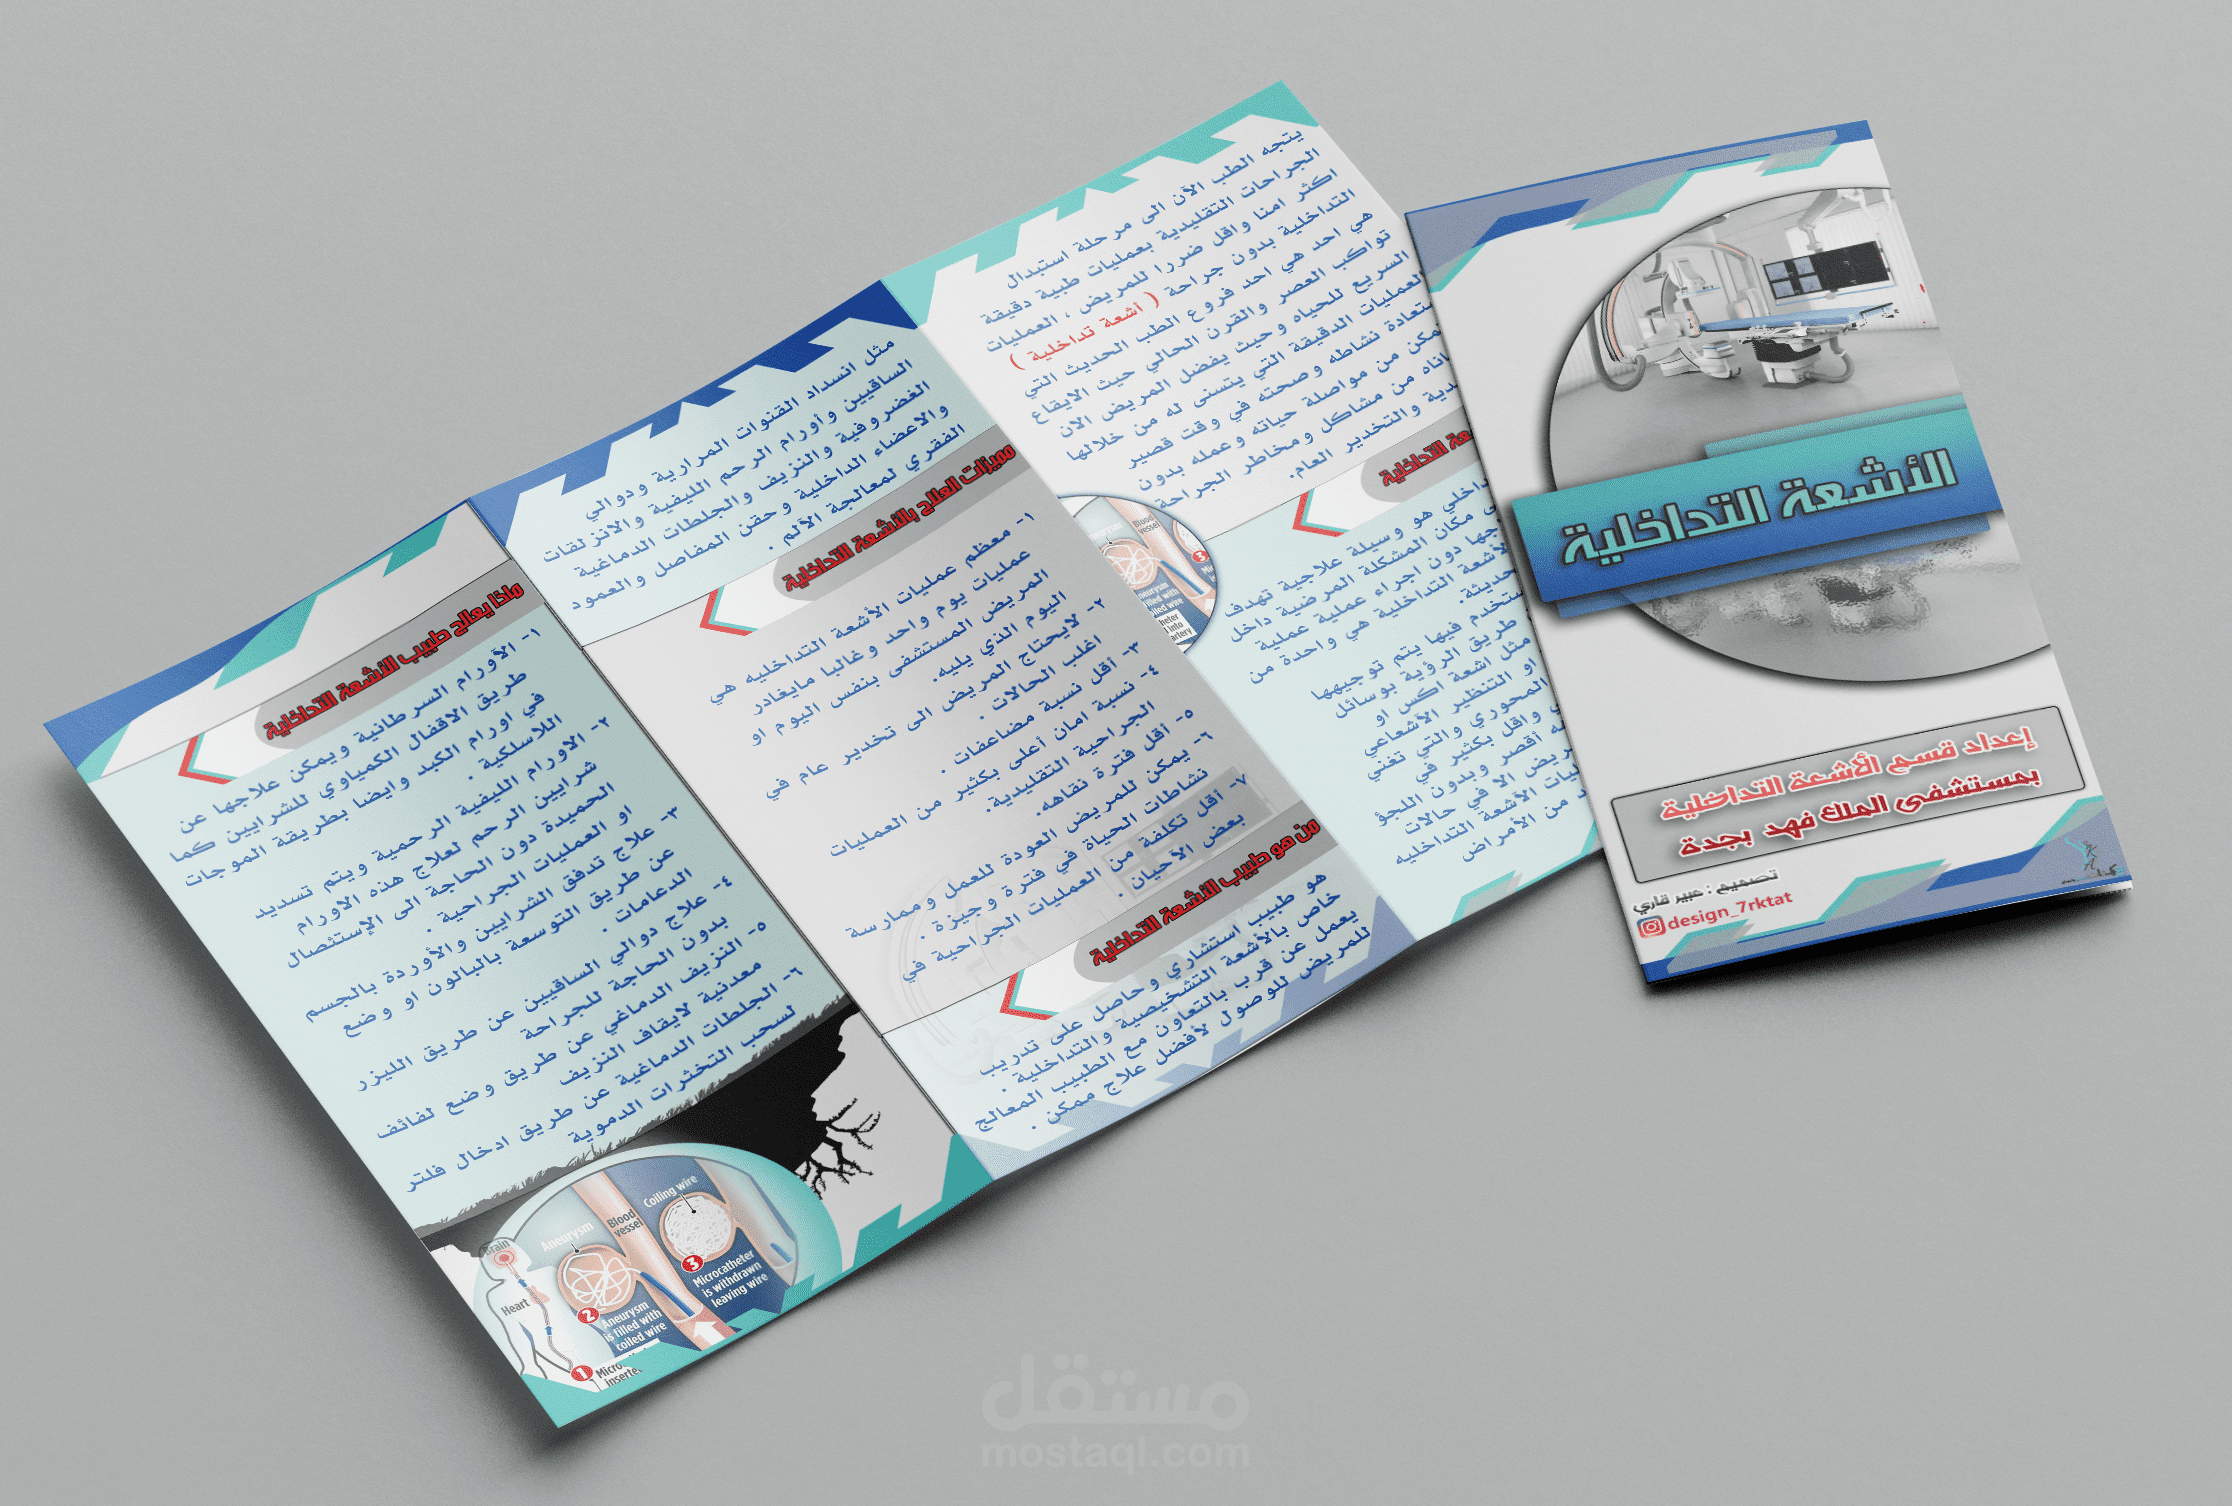 الأشعة التداخلية
إعداد قسم الأشعة التداخلية
بمستشفى الملك فهد بجدة
تصميم : عبير قاري
design_7rktat
يتجه الطب الآن الى مرحلة استبدال
الجراحات التقليدية بعمليات طبية دقيقة
اكثر امنا واقل ضررا للمريض ، العمليات
التداخلية بدون جراحة ( أشعة تداخلية )
هي احد هي احد فروع الطب الحديث التي
تواكب العصر والقرن الحالي حيث الايقاع
السريع للحياه وحيث يفضل المريض الان
العمليات الدقيقة التي يتسنى له من خلالها
ستعادة نشاطه وصحته في وقت قصير
من مواصلة حياته وعمله بدون
من مشاكل ومخاطر الجراحة
والتخدير العام.
التداخلية
هو وسيلة علاجية تهدف
مكان المشكلة المرضية داخل
دون اجراء عملية عملية
الأشعة التداخلية هي واحدة من
حديثة.
ستخدم فيها يتم توجيهها
طريق الرؤية بوسائل
مثل اشعة اكس او
او التنظير الأشعاعي
المحوري والتي تغني
واقل بكثير في
أقصر وبدون اللجؤ
الا في حالات
الأشعة التداخليه
من الأمراض
مثل انسداد القنوات المرارية ودوالي
الساقيين وأورام الرحم الليفية والانزلقات
الغضروفية والنزيف والجلطات الدماغية
والاعضاء الداخلية وحقن المفاصل والعمود
الفقري لمعالجة الألم .
مميزات العلاج بالأشعة التداخلية
١- معظم عمليات الأشعة التداخليه هي
عمليات يوم واحد وغالبا مايغادر
المريض المستشفى بنفس اليوم او
اليوم الذي يليه.
٢- لايحتاج المريض الى تخدير عام في
اغلب الحالات .
٣- أقل نسبة مضاعفات .
٤- نسبة امان أعلى بكثير من العمليات
الجراحية التقليدية.
٥- أقل فترة نقاهه.
٦- يمكن للمريض العودة للعمل وممارسة
نشاطات الحياة في فترة وجيزة .
٧- أقل تكلفة من العمليات الجراحية في
بعض الأحيان .
من هو طبيب الأشعة التداخلية
هو طبيب استشاري وحاصل على تدريب
خاص بالأشعة التشخيصية والتداخلية .
يعمل عن قرب بالتعاون مع الطبيب المعالج
للمريض للوصول لأفضل علاج ممكن .
ماذا يعالج طبيب الأشعة التداخلية
١- الأورام السرطانية ويمكن علاجها عن
طريق الاقفال الكمياوي للشرايين كما
في اورام الكبد وايضا بطريقة الموجات
اللاسلكية .
٢- الاورام الليفية الرحمية ويتم تسديد
شرايين الرحم لعلاج هذه الاورام
الحميدة دون الحاجة الى الإستئصال
او العمليات الجراحية .
٣- علاج تدفق الشرايين والأوردة بالجسم
عن طريق التوسعة بالبالون او وضع
الدعامات .
٤- علاج دوالي الساقيين عن طريق الليزر
بدون الحاجة للجراحة
٥- النزيف الدماغي عن طريق وضع لفائف
معدنية لايقاف النزيف
٦- الجلطات الدماغية عن طريق ادخال فلتر
لسحب التخثرات الدموية
Brain
Heart
Aneurysm
Blood
vessel
Coiling wire
3
Microcatheter
is withdrawn
leaving wire
2
Aneurysm
is filled with
coiled wire
1
مستقل
mostaql.com